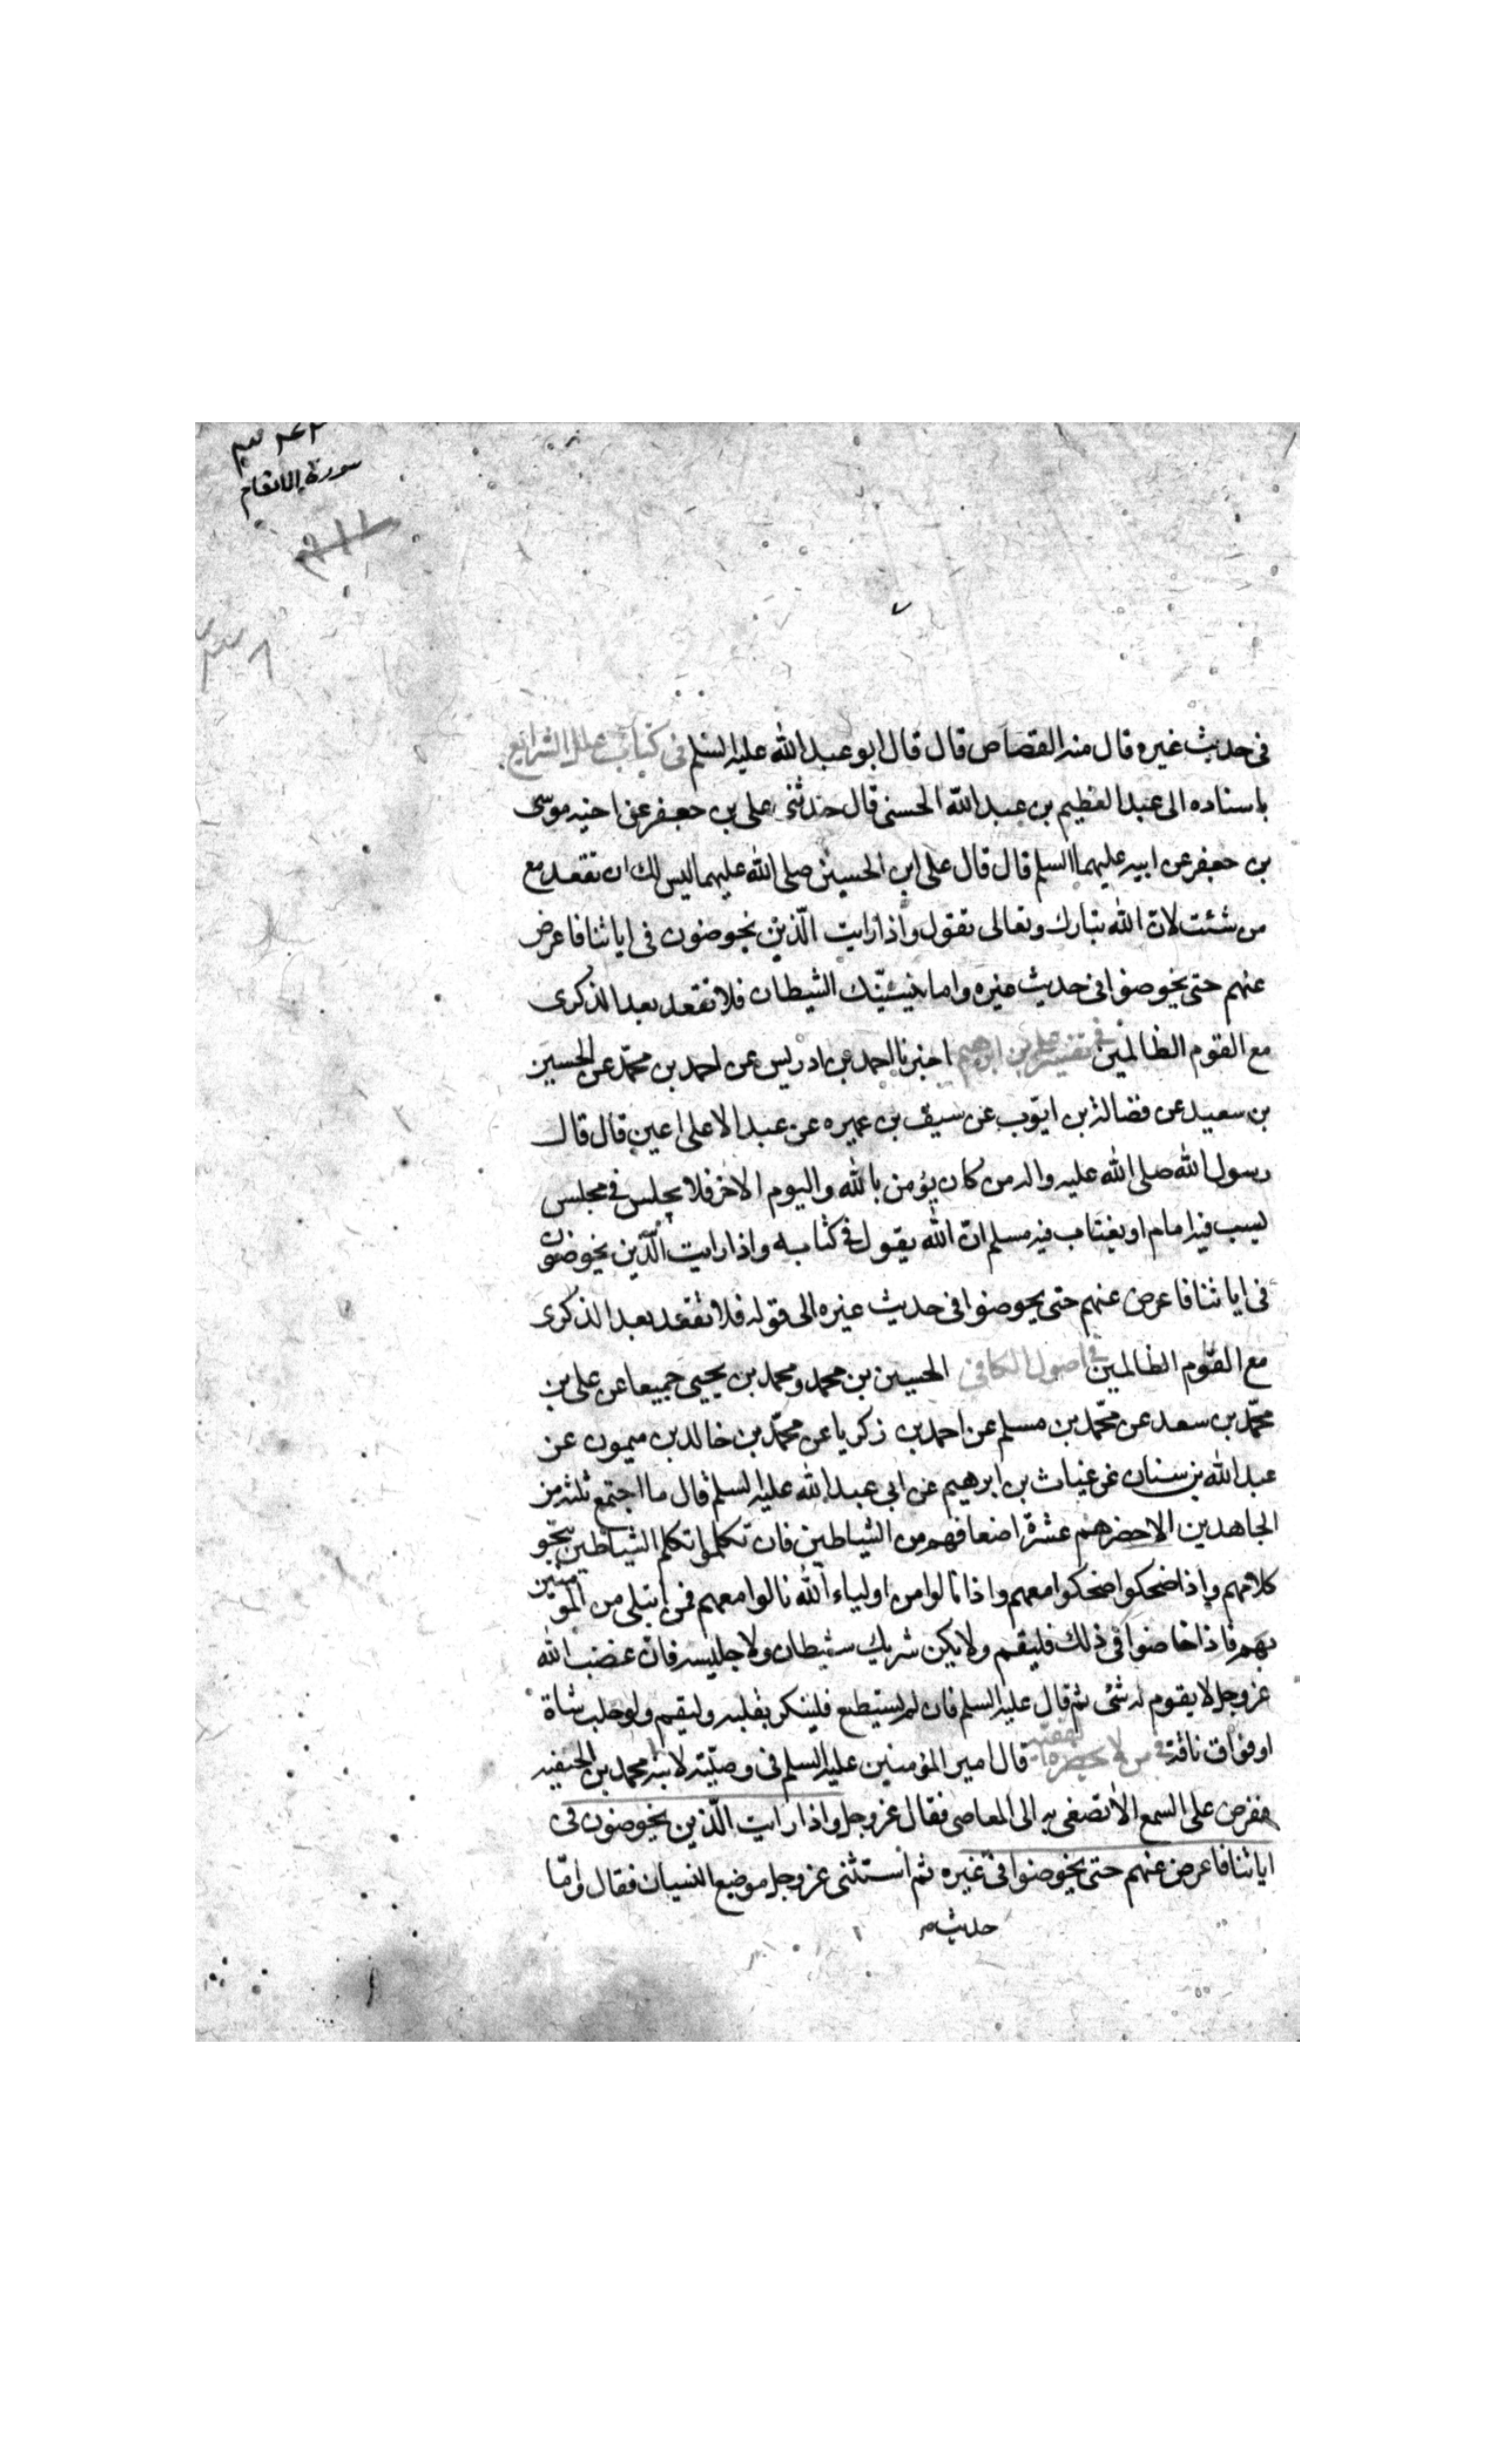 سورة الانعام
فى حديث غيره قال منه القصاص قال قال ابو عبد الله عليه السلم فى كتاب علل الشرايع
باسناده الى عبد العظيم بن عبد الله الحسنى قال حدثنى على بن جعفر عن اخيه موسى
بن جعفر عن ابيه عليهما السلم قال قال على ابن الحسين صلى الله عليهما ليس لك ان تقعد مع
من شئت لان الله تبارك وتعالى يقول واذا رايت الّذين يخوضون فى اياتنا فاعرض
عنهم حتى يخوضوا فى حديث غيره واما ينسينّك الشيطان فلا تقعد بعد الذكرى
مع القوم الظالمين فى تفسير على بن ابرهيم اخبرنا احمد بن ادريس عن احمد بن محمّد عن الحسين
بن سعيد عن فضالة بن ايّوب عن سيف بن عميره عن عبد الاعلى اعين قال قال
رسول الله صلى الله عليه واله من كان يؤمن بالله واليوم الاخر فلا يجلس فى مجلس
يسب فيه امام او يغتاب فيه مسلم انّ الله يقول فى كتابه واذا رايت الّذين يخوضون
فى اياتنا فاعرض عنهم حتى يخوضوا فى حديث غيره الى قوله فلا تقعد بعد الذكرى
مع القوم الظالمين فى اصول الكافى الحسين بن محمد ومحمد بن يحيى جميعا عن على بن
محمّد بن سعد عن محمّد بن مسلم عن احمد بن زكريا عن محمّد بن خالد بن ميمون عن
عبد الله بن سنان عن غياث بن ابرهيم عن ابى عبد الله عليه السلم قال ما اجتمع ثلثة من
الجاهدين الا حضرهم عشرة اضعافهم من الشياطين فان تكلموا تكلم الشياطين بنحو
كلامهم واذا ضحكوا ضحكوا معهم واذا نالوا من اولياء الله نالوا معهم فمن ابتلى من المؤمنين
بهم فاذا خاضوا فى ذلك فليقم ولا يكن شريك شيطان ولا جليسه فان غضب الله
عز وجل لا يقوم له شئ ثم قال عليه السلم فان لم يستطيع فلينكر بقلبه وليقم ولو حلب شاة
او فواق ناقة فى من لا يحضره الفقيه قال امير المؤمنين عليه السلم فى وصيّته لابنه محمد بن الحنفيه
ففرض على السمع الا تصغى به الى المعاصى فقال عز وجل واذا رايت الّذين يخوضون فى
اياتنا فاعرض عنهم حتى يخوضوا فى غيره ثم استثنى عز وجل موضع النسيان فقال وامّا
حديث